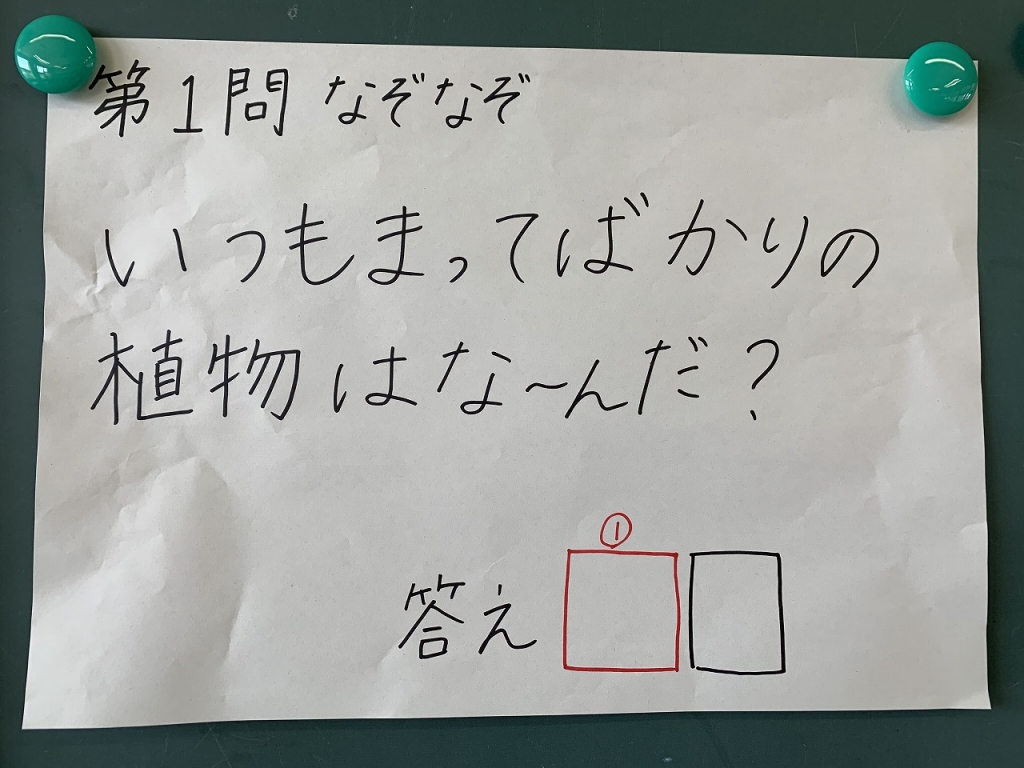 第1問 なぞなぞ
いつもまってばかりの
植物はな〜んだ?
①
答え